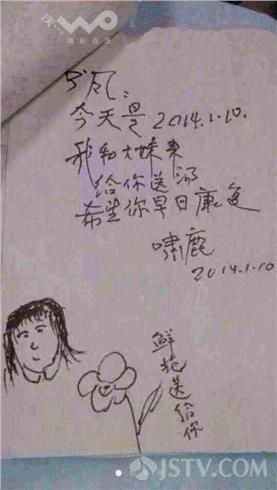 今天是2014.1.10.
我和大妹来
给你送汤
希望你早日康复
啸鹿
2014.1.10
鲜花送给你
JSTV.COM